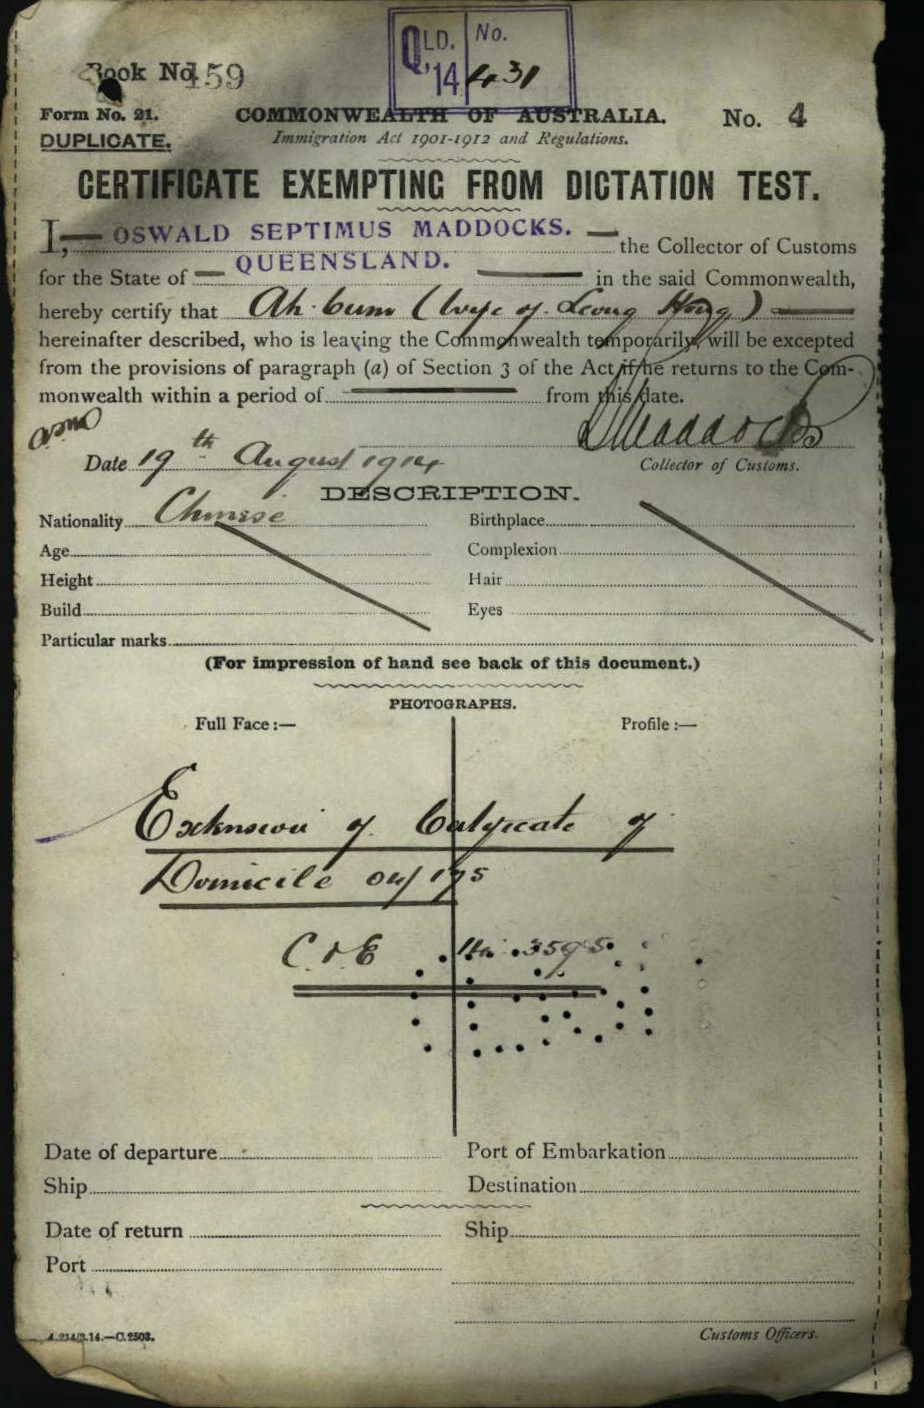 QLD. '14 No. 431
Book No. 159
Form No. 21. COMMONWEALTH OF AUSTRALIA. No. 4
DUPLICATE. Immigration Act 1901-1912 and Regulations.
CERTIFICATE EXEMPTING FROM DICTATION TEST.
I, OSWALD SEPTIMUS MADDOCKS. the Collector of Customs
for the State of QUEENSLAND. in the said Commonwealth,
hereby certify that Ah Cum (Wife of Leong Hong)
hereinafter described, who is leaving the Commonwealth temporarily, will be excepted
from the provisions of paragraph (a) of Section 3 of the Act if he returns to the Com-
monwealth within a period of from this date.
OSMaddocks
Date 19th August 1914 Collector of Customs.
DESCRIPTION.
Nationality Chinese Birthplace
Age Complexion
Height Hair
Build Eyes
Particular marks
(For impression of hand see back of this document.)
PHOTOGRAPHS.
Full Face:— Profile:—
Extension of Certificate of
Domicile 04/175
Date of departure Port of Embarkation
Ship Destination
Date of return Ship
Port
A.234/3.14.—C.2503. Customs Officers.